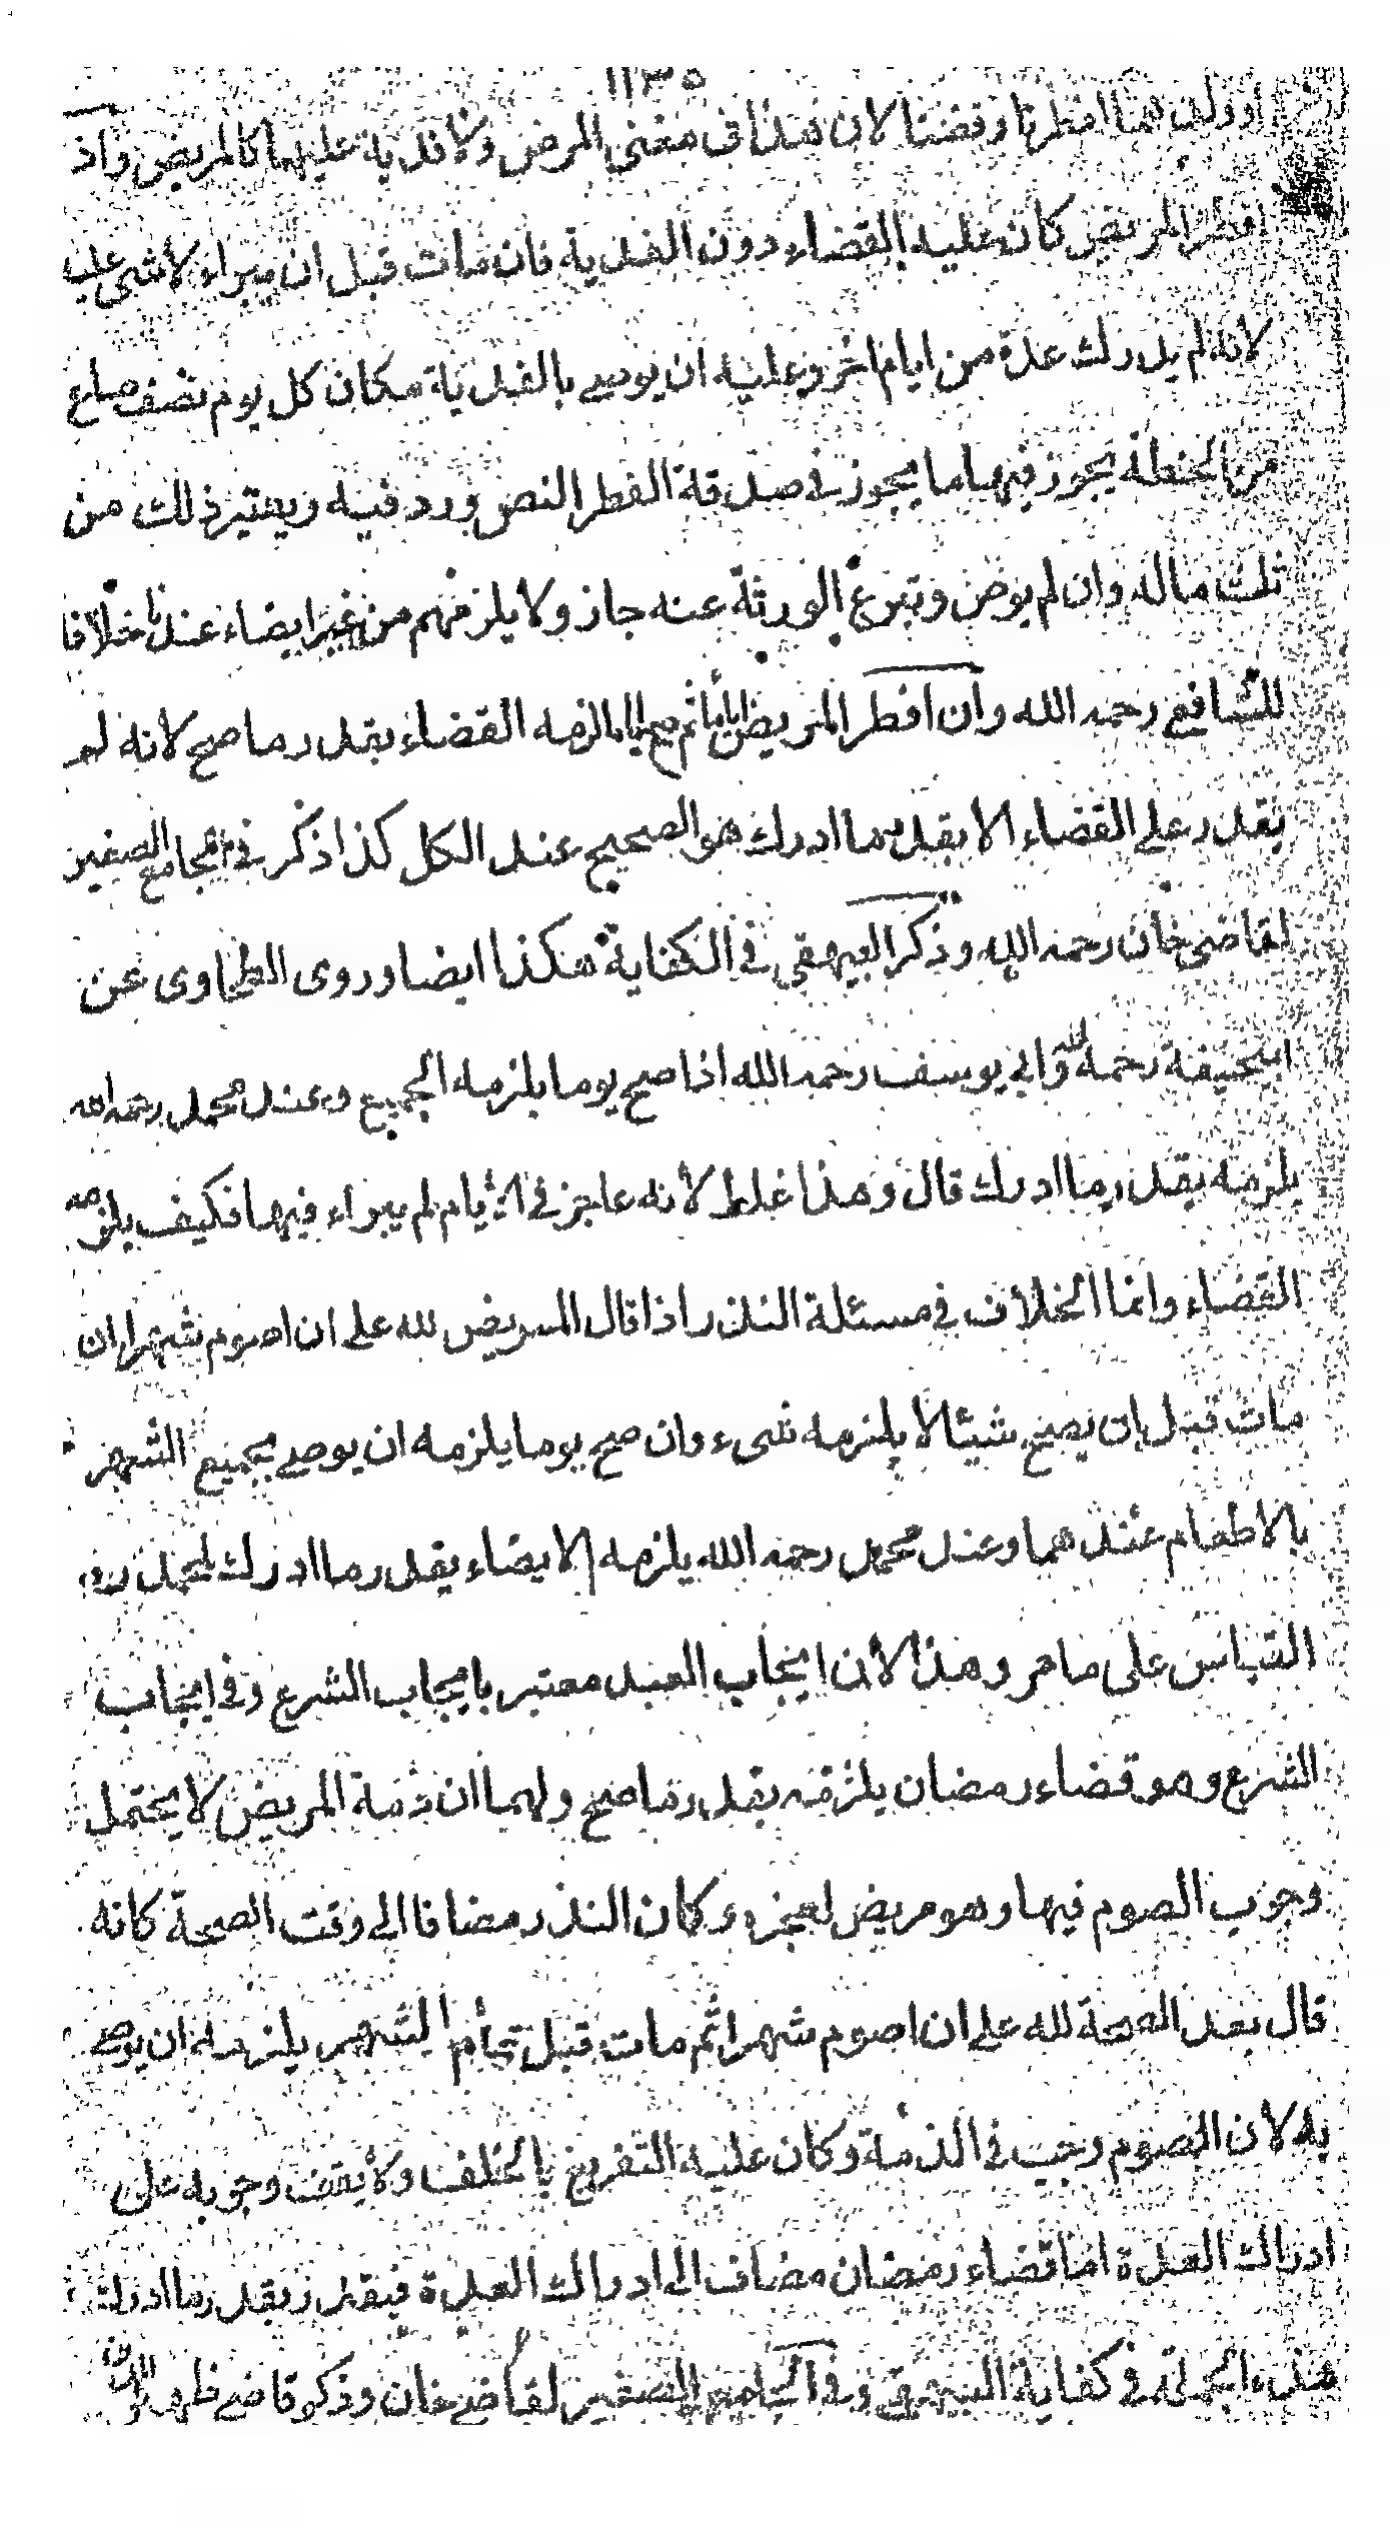 او ولديهما افطرتا وقضتا لان هذا فى معنى المرض ولا فدية عليهما كالمريض واذ
افطر المريض كان عليه القضاء دون الفدية فان مات قبل ان يبراء لا شى عليه
لانه لم يدرك عدة من ايام اخر وعليه ان يوصى بالفدية مكان كل يوم نصف صاع
من الحنطة يجوز فيها ما يجوز فى صدقة الفطر النص ورد فيه ويعتبر ذلك من
ثلث ماله وان لم يوص وتبرع الورثة عنه جاز ولا يلزمهم من غير ايضاء عندنا خلافا
للشافعى رحمه الله وان افطر المريض اياما ثم صح اياما لزمه القضاء بقدر ما صح لانه لم
يقدر على القضاء الا بقدر ما ادرك هو الصحيح عند الكل كذا ذكر فى الجامع الصغير
لقاضى خان رحمه الله وذكر البيهقى فى الكفاية هكذا ايضا وروى الطحاوى عن
ابيحنيفة رحمة الله وابى يوسف رحمه الله اذا صح يوما يلزمه الجميع وعند محمد رحمه الله
يلزمه بقدر ما ادرك قال وهذا غلط لانه عاجز فى الايام لم يبراء فيها فكيف يلزمه
القضاء وانما الخلاف فى مسئلة النذر اذا قال المريض لله على ان اصوم شهرا ان
مات قبل ان يصح شيئا لا يلزمه شىء وان صح يوما يلزمه ان يوصى بجميع الشهر
بالاطعام عندهما وعند محمد رحمه الله يلزمه الايضاء بقدر ما ادرك لمحمد رحه
القياس على ما مر وهذا لان ايجاب العبد معتبر بايجاب الشرع وفى ايجاب
الشرع وهو قضاء رمضان يلزمه بقدر ما صح ولهما ان ذمة المريض لا يحتمل
وجوب الصوم فيها وهو مريض لعجزه وكان النذر مضافا الى وقت الصحة كانه
قال بعد الصحة لله على ان اصوم شهرا ثم مات قبل تمام الشهر يلزمه ان يوصى
به لان الصوم وجب فى الذمة وكان عليه التفريغ بالخلف ولا يقف وجوبه على
ادراك العدة اما قضاء رمضان مضاف الى ادراك العدة فيقدر بقدر ما ادرك
هذه الجملة فى كفاية البيهقى وفى الجامع الصغير لقاضى خان وذكر قاضى ظهير الدين